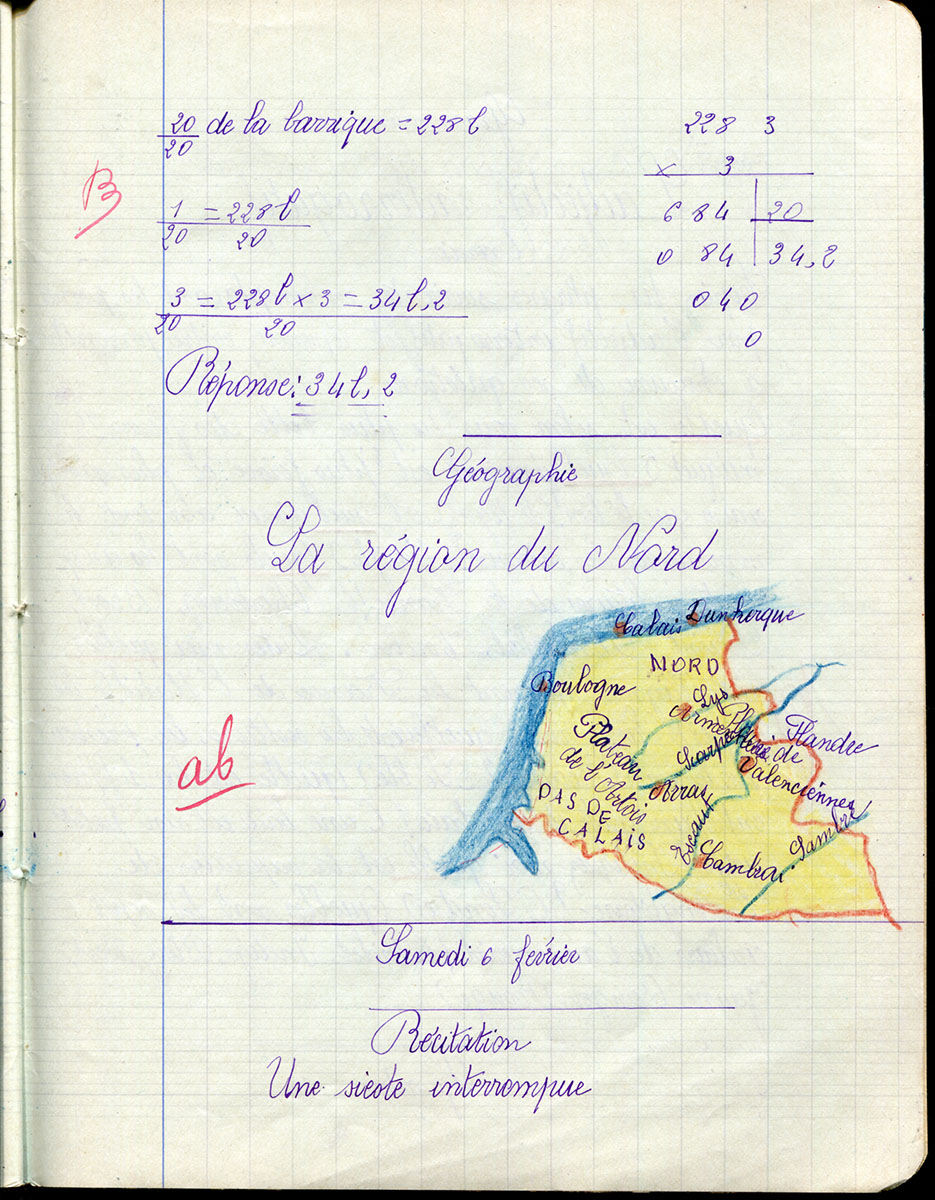 20/20 de la barrique = 228 l
B
1/20 = 228 l/20
3/20 = 228 l × 3/20 = 34 l, 2
Réponse: 34 l, 2
228 3
× 3
684 20
0 84 34,2
040
0
Géographie
La région du Nord
ab
Calais Dunkerque
NORD
Boulogne
Lys
Armentières
Flandre
Plaine de
Valenciennes
Scarpe
Plateau
de l'Artois
Arras
PAS DE
CALAIS
Escaut
Cambrai
Sambre
Samedi 6 février
Récitation
Une sieste interrompue